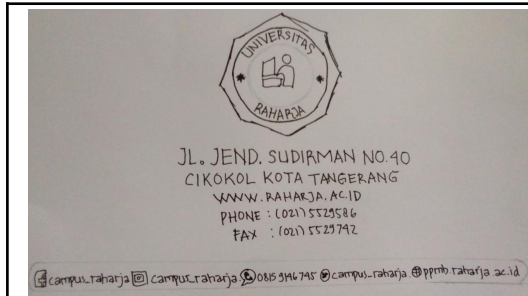 UNIVERSITAS
RAHARJA
JL. JEND. SUDIRMAN NO.40
CIKOKOL KOTA TANGERANG
WWW.RAHARJA.AC.ID
PHONE : (021) 5529586
FAX : (021) 5529742
campus_raharja campus_raharja 0815 9146 745 @campus_raharja ppmb.raharja.ac.id